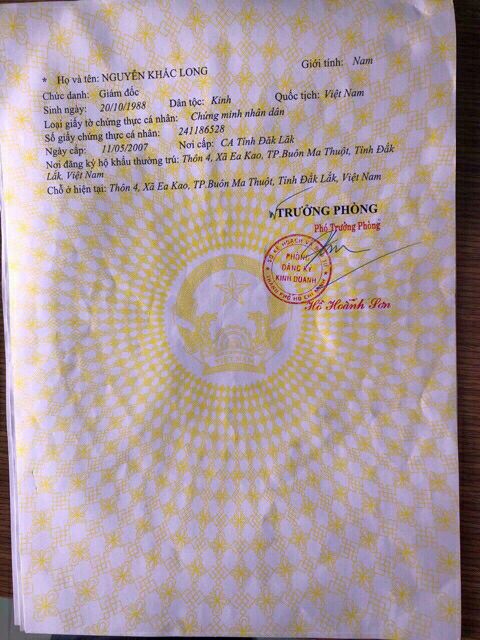 * Họ và tên: NGUYỄN KHẮC LONG Giới tính: Nam
Chức danh: Giám đốc
Sinh ngày: 20/10/1988 Dân tộc: Kinh Quốc tịch: Việt Nam
Loại giấy tờ chứng thực cá nhân: Chứng minh nhân dân
Số giấy chứng thực cá nhân: 241186528
Ngày cấp: 11/05/2007 Nơi cấp: CA Tỉnh Đăk Lăk
Nơi đăng ký hộ khẩu thường trú: Thôn 4, Xã Ea Kao, TP.Buôn Ma Thuột, Tỉnh Đắk
Lắk, Việt Nam
Chỗ ở hiện tại: Thôn 4, Xã Ea Kao, TP.Buôn Ma Thuột, Tỉnh Đắk Lắk, Việt Nam
TRƯỞNG PHÒNG
Phó Trưởng Phòng
SỞ KẾ HOẠCH VÀ ĐẦU TƯ
PHÒNG
ĐĂNG KÝ
KINH DOANH
THÀNH PHỐ HỒ CHÍ MINH
Hồ Hoành Sơn